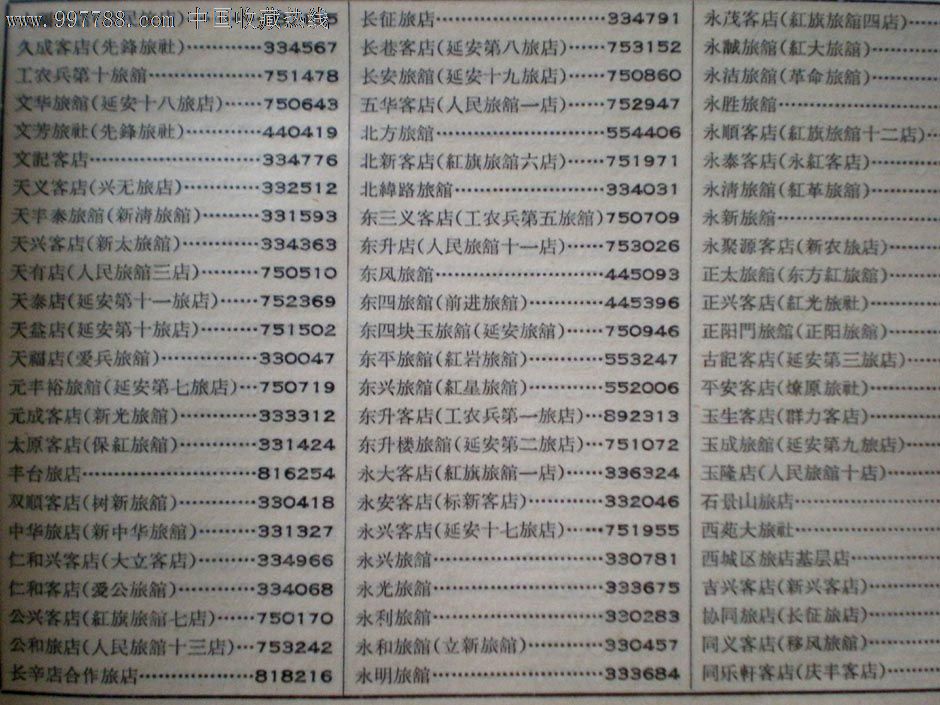 www.997788.com 中国收藏热线
久成客店(先鋒旅社)…………334567
工农兵第十旅館………………751478
文华旅館(延安十八旅店)……750643
文芳旅社(先鋒旅社)…………440419
文記客店………………………334776
天义客店(兴无旅店)…………332512
天丰泰旅館(新清旅館)………331593
天兴客店(新太旅館)…………334363
天有店(人民旅館三店)………750510
天泰店(延安第十一旅店)……752369
天益店(延安第十旅店)………751502
天福店(爱兵旅館)……………330047
元丰裕旅館(延安第七旅店)…750719
元成客店(新光旅館)…………333312
太原客店(保紅旅館)…………331424
丰台旅店………………………816254
双順客店(树新旅館)…………330418
中华旅店(新中华旅館)………331327
仁和兴客店(大立客店)………334966
仁和客店(爱公旅館)…………334068
公兴客店(紅旗旅館七店)……750170
公和旅店(人民旅館十三店)…753242
长辛店合作旅店………………818216
长征旅店………………………334791
长巷客店(延安第八旅店)……753152
长安旅館(延安十九旅店)……750860
五华客店(人民旅館一店)……752947
北方旅館………………………554406
北新客店(紅旗旅館六店)……751971
北緯路旅館……………………334031
东三义客店(工农兵第五旅館)750709
东升店(人民旅館十一店)……753026
东风旅館………………………445093
东四旅館(前进旅館)…………445396
东四块玉旅館(延安旅館)……750946
东平旅館(紅岩旅館)…………553247
东兴旅館(紅星旅館)…………552006
东升客店(工农兵第一旅店)…892313
东升楼旅館(延安第二旅店)…751072
永大客店(紅旗旅館一店)……336324
永安客店(标新客店)…………332046
永兴客店(延安十七旅店)……751955
永兴旅館………………………330781
永光旅館………………………333675
永利旅館………………………330283
永和旅館(立新旅館)…………330457
永明旅館………………………333684
永茂客店(紅旗旅館四店)……
永誠旅館(紅大旅館)…………
永洁旅館(革命旅館)…………
永胜旅館………………………
永順客店(紅旗旅館十二店)…
永泰客店(永紅客店)…………
永清旅館(紅革旅館)…………
永新旅館………………………
永聚源客店(新农旅店)………
正太旅館(东方紅旅館)………
正兴客店(紅光旅社)…………
正阳門旅館(正阳旅館)………
古記客店(延安第三旅店)……
平安客店(燎原旅社)…………
玉生客店(群力客店)…………
玉成旅館(延安第九旅店)……
玉隆店(人民旅館十店)………
石景山旅店……………………
西苑大旅社……………………
西城区旅店基层店……………
吉兴客店(新兴客店)…………
协同旅店(长征旅店)…………
同义客店(移风旅館)…………
同乐軒客店(庆丰客店)………